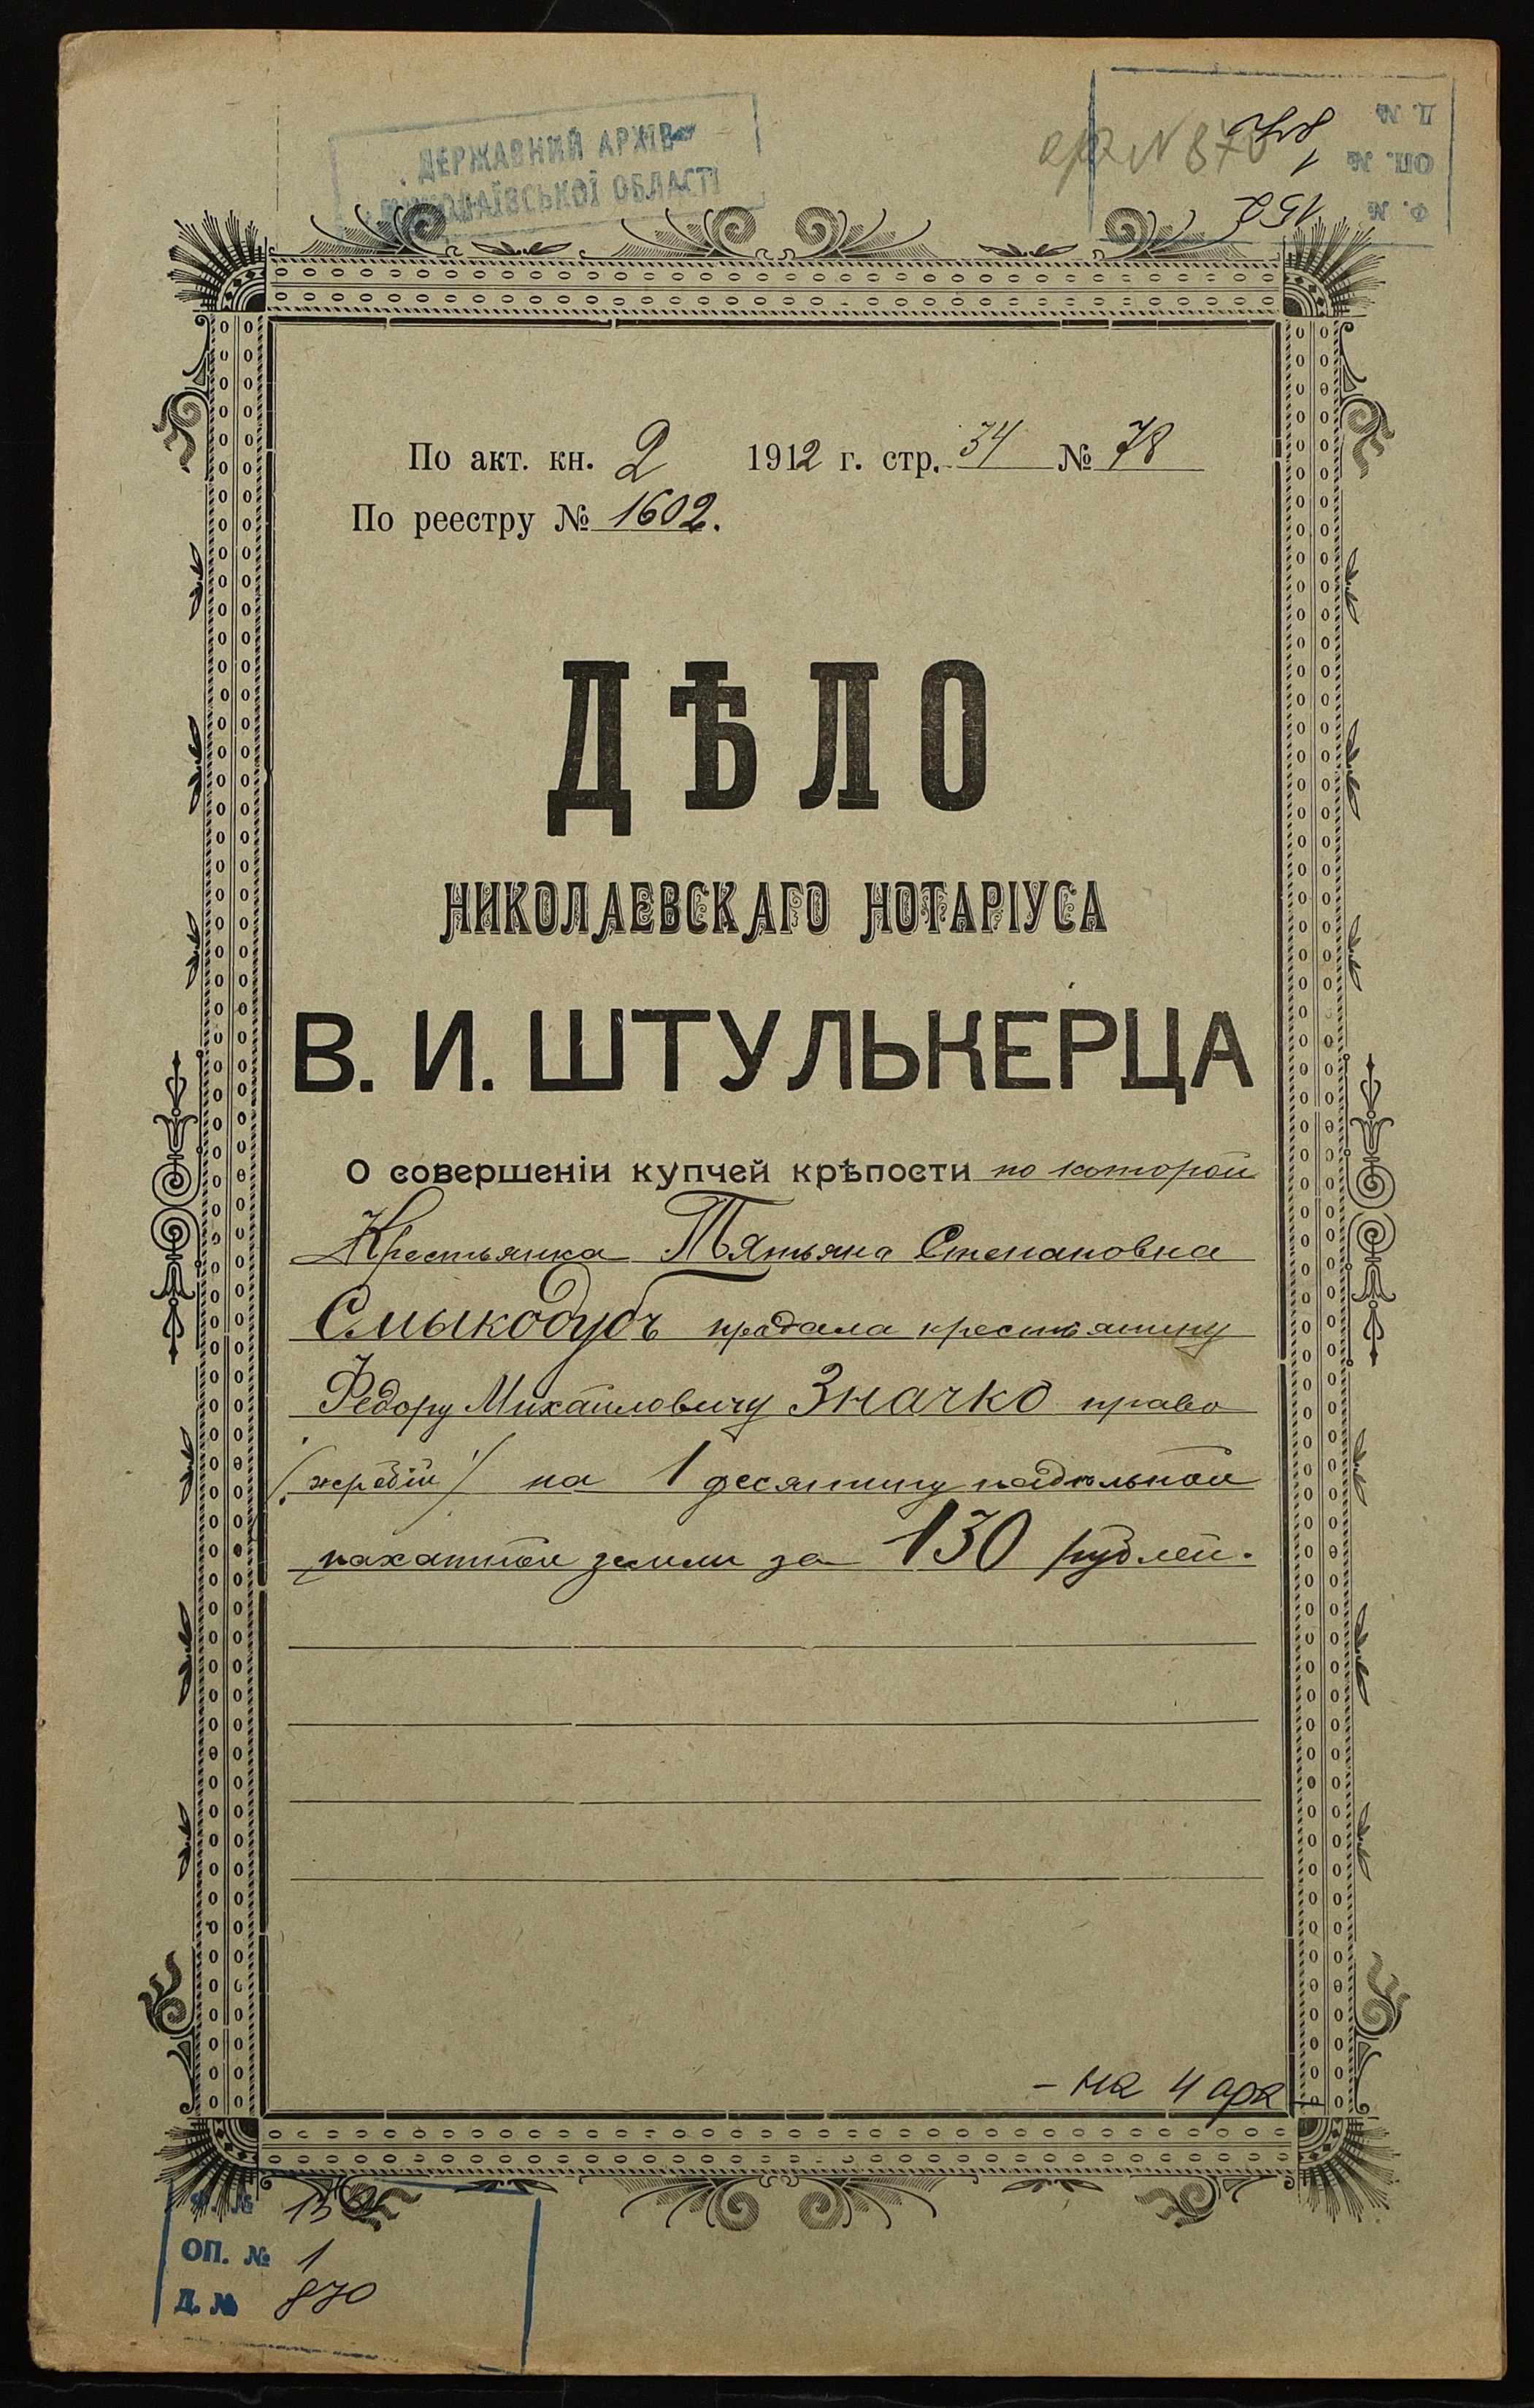 ДЕРЖАВНИЙ АРХІВ
МИКОЛАЇВСЬКОЇ ОБЛАСТІ
Ф. № 152
ОП. № 1
Д. №
По акт. кн. 2 1912 г. стр. 34 № 78
По реестру № 1602.
ДѢЛО
НИКОЛАЕВСКАГО НОТАРІУСА
В. И. ШТУЛЬКЕРЦА
О совершеніи купчей крѣпости по которой
Крестьянка Татьяна Степановна
Смыкодубъ продала крестьянину
Федору Михайловичу Значко право
/жребій/ на 1 десятину надѣльной
пахатной земли за 130 рублей.
- на 4 арк
Ф. № 152
ОП. № 1
Д. № 870